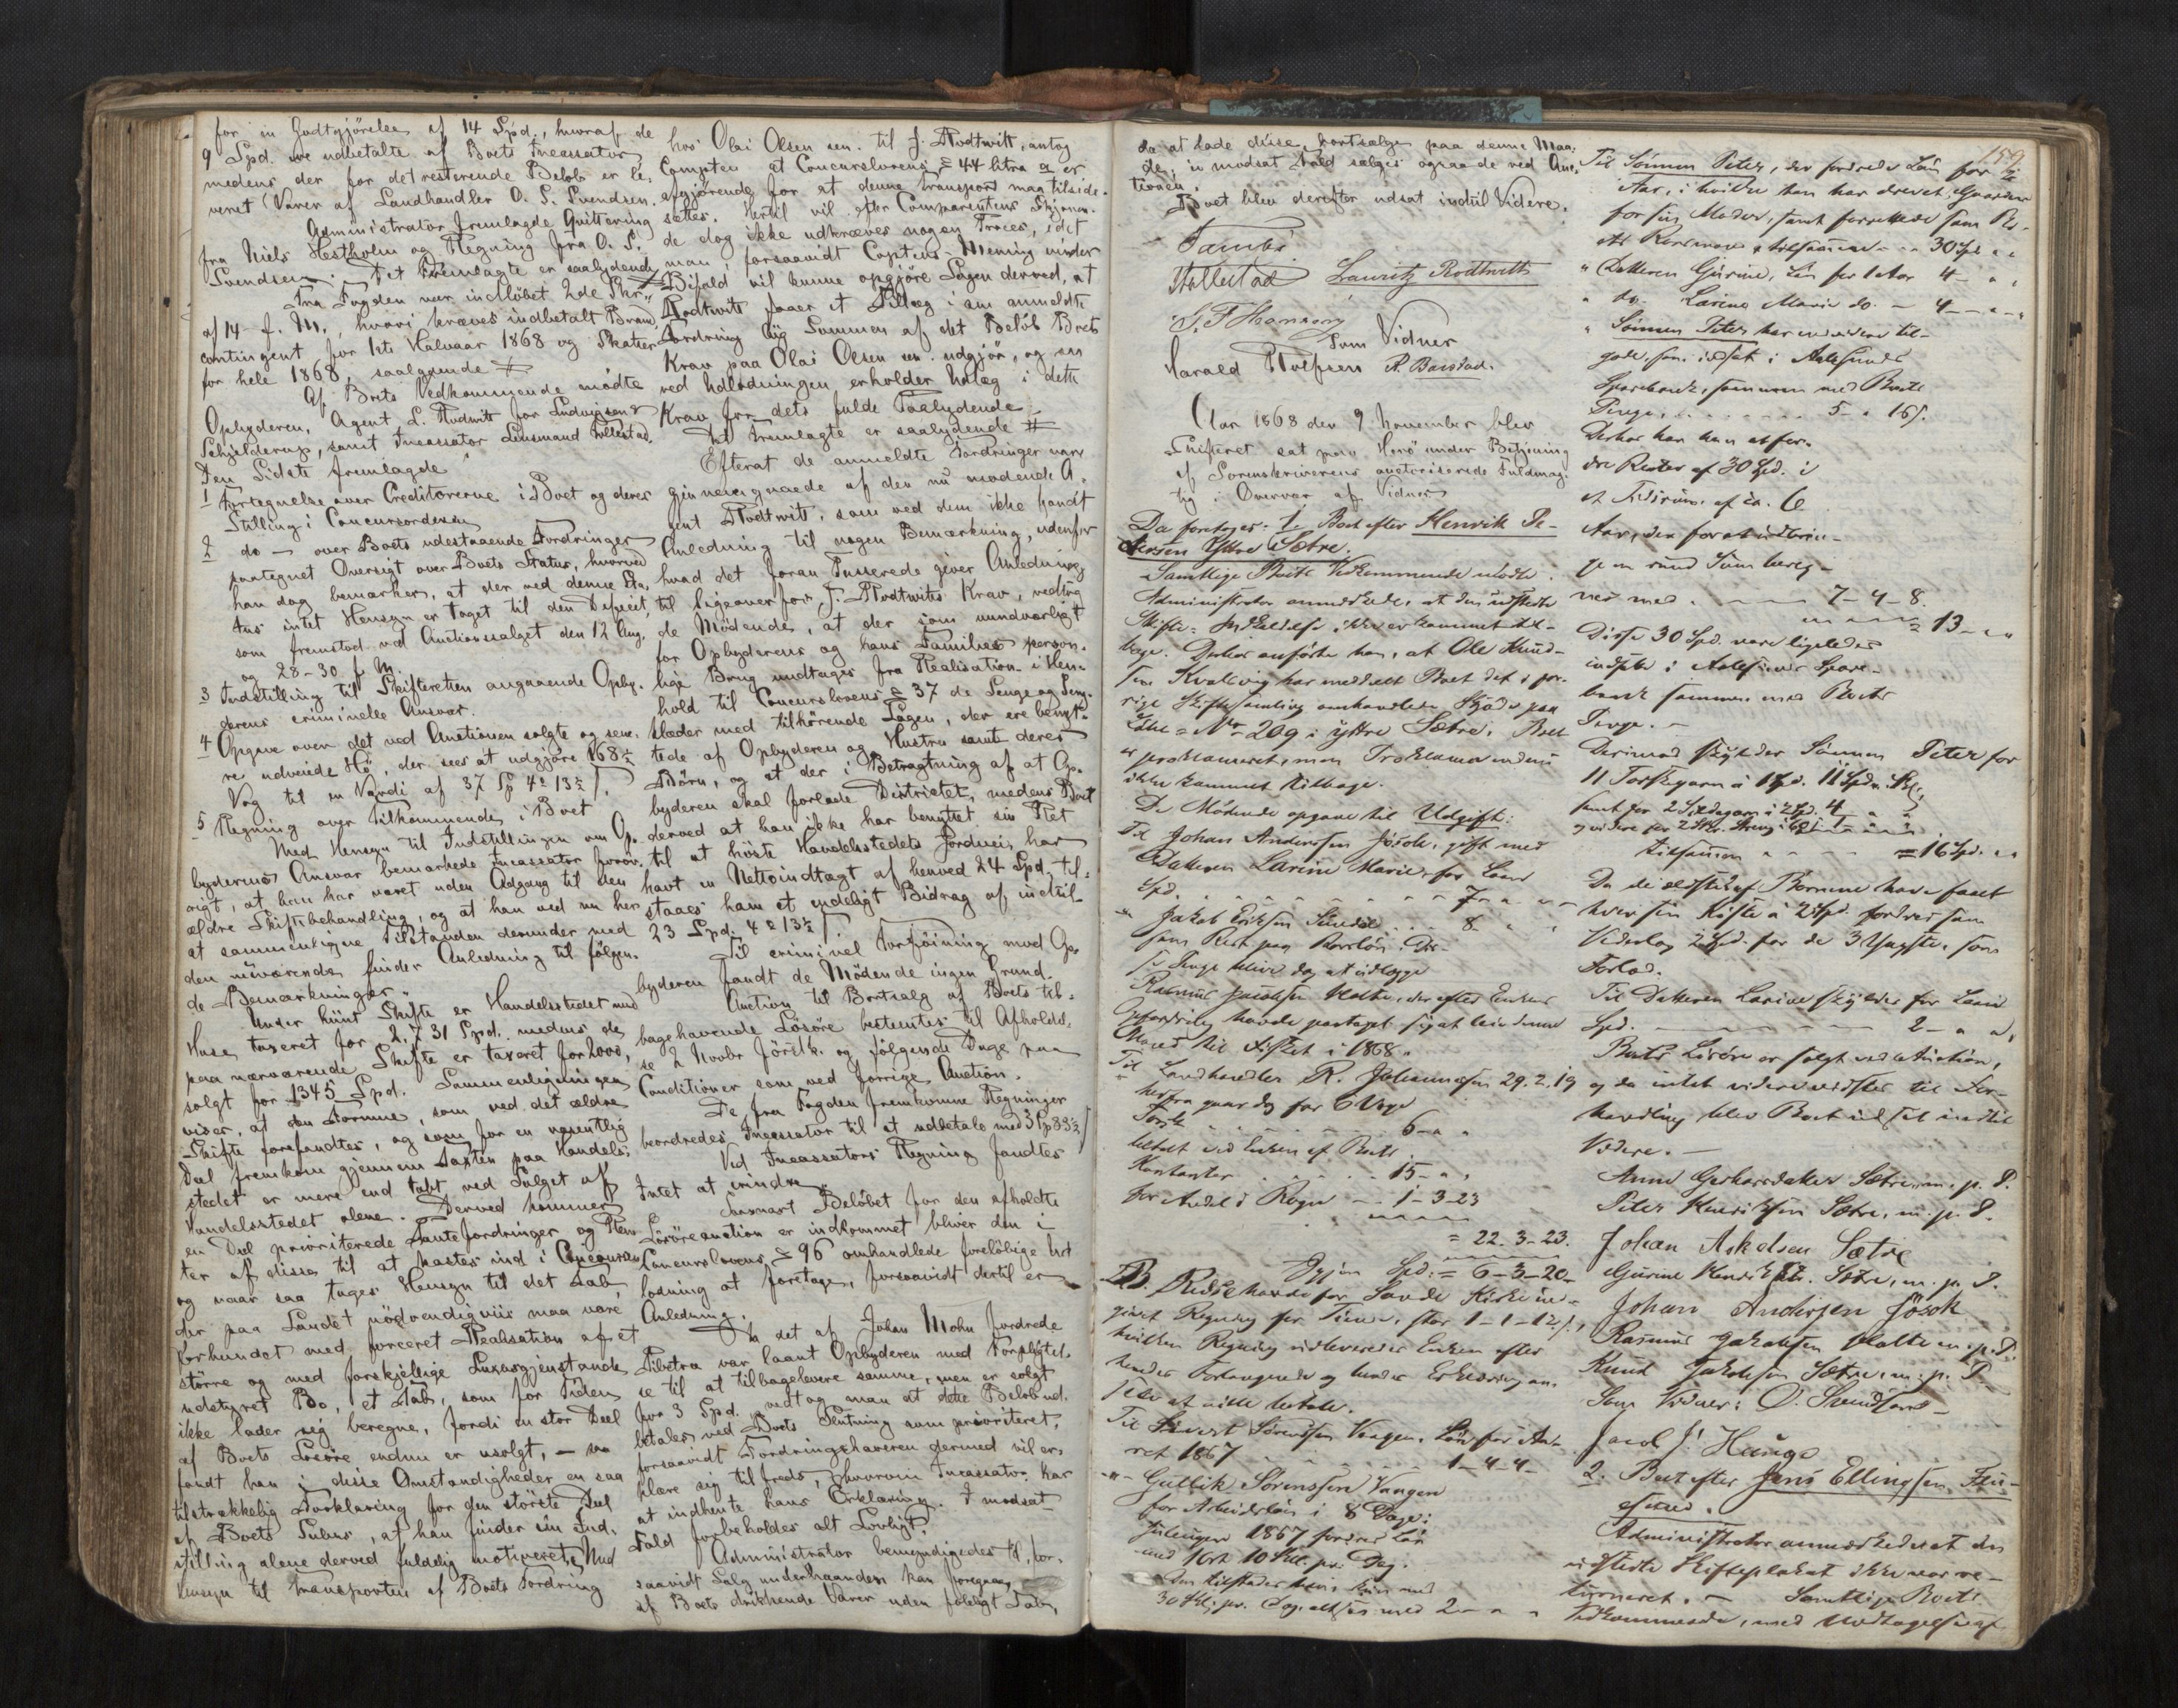 for en Godtgjörelse af 14 Spd., hvoraf de
9 Spd. ere udbetalte af Boets Incassator
medens der for det resterende Belöb er le-
veret Varer af Landhandler O. S. Svendsen.
Administrator fremlagde Quittering
fra Niels Hestholm og Regning fra O. S.
Svendsen. Det Fremlagte er saalydende
Fra Fogden var indlöbet 2de Skr.
af 14 f. M., hvori kræves indbetalt Brand
contingent for 1ste Halvaar 1868 og Skatter
for hele 1868, saalydende #
Af Boets Vedkommende mödte
Opbyderen, Agent L. Rodtwitt for Ludvigsen &
Schjelderup, samt Incassator Lensmand Hallestad.
Den Sidste fremlagde
1 Fortegnelse over Creditorerne i Boet og deres
Stilling i Concursordenen
2 do — over Boets udestaaende Fordringer
paategnet Oversigt over Boets Status, hvorved
han dog bemærker, at der ved denne Sta-
tus intet Hensyn er taget til den Deficit,
som fremstod ved Auctionssalget den 12 Aug.
og 28-30 f. M.
3 Indstilling til Skifteretten angaaende Opby-
derens criminelle Ansvar.
4 Opgave over det ved Auctionen solgte og sene-
re udveiede Hö, der sees at udgjöre 168½
Vog til en Værdi af 37 Sp 4 13½ ſ.
5 Regning over Tilkommende i Boet
Med Hensyn til Indstillingen om Op-
byderens Ansvar bemærkede Incassator foröv-
rigt, at han har været uden Adgang til den
ældre Skiftebehandling, og at han ved nu her
at sammenligne Tilstanden derunder med
den nuværende finder Anledning til fölgen-
de Bemærkninger.
Under hiint Skifte er Handelsstedet med
Huse taxeret for 2,731 Spd. medens de
paa nærværende Skifte er taxeret for 2000,
solgt for 1345 Spd. Sammenligningen
viser, at den Formue, som ved det ældre
Skifte forefandtes, og som for en væsentlig
Deel fremkom gjennem Taxten paa Handels-
stedet er mere end tabt ved Salget af
Handelsstedet alene. Derved kommer
en Deel prioriterede Panteforderinger og Ren-
ter af disse til at kastes ind i Concursen
og naar saa tages Hensyn til det Tab,
der paa Landet nödvendigviis maa være
forbundet med forceret Realisation af et
större og med forskjellige Luxusgjenstande
udstyret Bo, et Tab, som for Tiden
ikke lader sig beregne, fordi en stor Deel
af Boets Lösöre endnu er usolgt, — saa
fandt han i disse Omstændigheder en saa
tilstrækkelig Forklaring for den störste Deel
af Boets Minus, at han finder sin Ind-
stilling alene derved fuldelig motiveret. Med
Hensyn til Transporten af Boets Fordring
hos Olai Olsen sen. til J. Rodtwitt, antog
Compten at Concurslovens § 44 litra a er
afgjörende for at denne Transport maa tilside-
sættes. Hertil vil efter Comparentens Skjönnen-
de dog ikke udkræves nogen Proces, idet
man, forsaavidt Coptens Mening vinder
Bifald vil kunne opgjöre Sagen derved, at
Rodtwitt faaer et Tillæg i sin anmeldte
Fordring lig Summen af det Belöb Boets
Krav paa Olai Olsen sen. udgjör, og saa
ved Udlodningen erholder Udlæg i dette
Krav for dets fulde Paalydende
Det Fremlagte er saalydende #
Efterat de anmeldte Fordringer vare
gjennemgaaede af den nu mødende A-
gent Rodtwitt, som ved dem ikke fandt
Anledning til nogen Bemærkning, udenfor
hvad det foran Passerede giver Anledning
til ligeoverfor J. Rodtwitts Krav, vedtog
de Mödende, at der som uundværligt
for Opbyderens og hans Families person-
lige Brug undtages fra Realisation i Hen-
hold til Concurslovens § 37 de Senge og Seng-
klæder med tilhörende Lagen, der ere benyt-
tede af Opbyderen og Hustru samt deres
Börn, og at der i Betragtning af at Op-
byderen skal forlade Districtet, medens Boet
derved at han ikke har benyttet sin Ret
til at höste Handelsstedets Jordvei, har
havt en Nettoindtægt af henved 24 Spd., til-
staaes ham et endeligt Bidrag af indtil
23 Spd. 4 13½ ſ
Til criminel Forföining mod Op-
byderen fandt de Mödende ingen Grund.
Auction til Bortsalg af Boets til-
bagehavende Lösöre besteuntes til Afholdel-
se 2 Novbr förstk. og fölgende Dage paa
Conditioner som ved forrige Auction.
De fra Fogden fremkomne Regninger
beordredes Incassator til at udbetale med 3 Sp 33½ ſ
Ved Incassators Regning fandtes
Intet at erindre.
Saasnart Belöbet for den afholdte
Lösöreauction er indkommet bliver den i
Concurslovens § 96 omhandlede foreløbige Ud-
lodning at foretage, forsaavidt dertil er
Anledning.
Da det af Johan Mohn fordrede
Piketra var laant Opbyderen med Forpligtel-
se til at tilbagelevere samme, men er solgt
for 3 Spd., vedtog man at dette Belöb ud-
betales ved Boets Slutning som prioriteret,
forsaavidt Fordringshaveren dermed vil er-
klære sig tilfreds, hvorom Incassator har
at indhente hans Erklæring. I modsat
Fald forbeholdes alt Lovligt.
Administrator bemyndigedes til, for-
saavidt Salg underhaanden kan foregaae
af Boets drikkende Varer uden föleligt Tab,
da at lade disse bortsælge paa denne Maa-
de; i modsat Fald sælges ogsaa de ved Auc-
tionen.
Boet blev derefter udsat indtil Videre.
Hallestad Lauritz Rodtwitt
Som Vidner
Harald Rolfsen R. Barstad.
Aar 1868 den 9 November blev
Skifteret sat paa Herö under Betjening
af Sorenskriverens auctoriserede Fuldmæg-
tig i Overvær af Vidner
Da foretoges: 1. Boet efter Henrik Pe-
dersen Yttre Sætre.
Samtlige Boets Vedkommende mødte.
Administrator anmærkede, at den udstedte
Skifte-Indkaldelse ikke er kommet til-
bage. Derhos anførte han, at Ole Knud-
sen Kvalevig har meddelt Boet det i for-
rige Skiftesamling omhandlede Skjøde paa
Nr 209 i Yttre Sætre. Boet
er proklameret, men Proklama endnu
ikke kommet tilbage.
De Mødende opgave til Udgift:
Til Johan Andersen Jösok, gift med
Datteren Larine Marie, for Laan
Spd. 7 - " - "
" Jakob Eriksen 8 - " "
som Rest paa Dis-
se Penge blive dog at udlægge
Rasmus Jacobsen der efter Enkens
Opfordring havde paataget sig at
til Fisket i 1868.
Til Landhandler R. Johannesen 29.2.19
herfra gaar dog for 6 Voge
Torsk 6 - " "
betalt ved Enken af Boets
Kontanter 15 - " "
for Andel i Rogn 1-3-23
= 22.3-23.
Igjen Spd. = 6-3-20.
havde for Sande Kirke ind-
givet Regning for Tiende, stor 1-1-12 ſ,
hvilken Regning udleveredes Enken efter
hendes Forlangende og hendes Erklæring om
selv at ville betale.
Til Sivert Sörenssen Vaagen, Lön for Aa-
ret 1867 1-4-4-
- " - Gullik Sørenssen Vangen
for Arbeidslön i 8 Dage
1867 fordret Lön
med 1 ort 10 Skl. pr. Dag.
Den tilstodes ham kun med
30 Skl. pr. Dag, altsaa med 2 - " "
159
Til Sönnen Peter, der fordrede Lön for
Aar, i hvilke han har drevet Gaarden
for sin Moder, samt
tilsammen - 30 Spd " "
" Datteren Gurine, Lön for 1 Aar 4 - " "
" do. Larine Marie do. - 4 - " "
" Sönnen Peter har endvidere til-
gode, som indsat i Aalesunds
Sparebank, sammen med Boets
Penge, 5 - " 16 ſ.
Derhos har han at for-
dre Renter af 30 Spd. i
et Tidsrum af ca. 6
Aar, der for at udbrin-
ge en rund Sum bereg-
nes med 7-4-8.
= 13 - " "
Disse 30 Spd. vare ligeledes
indsatte i Aalesunds Spare-
bank sammen med Boets
Penge. —
Derimod skylder Sönnen Peter for
11 Torskegarn à 1 Spd. 11 Spd.
samt for 2 Sildegarn à 2 Spd. 4 " "
tilsammen = 16 Spd. " "
Da de ældste af Börnene have faaet
hver sin Kiste à 2 Spd. fordres som
Vederlag 2 Spd. for de 3 Yngste, som
Forlod.
Til Datteren Larine skyldes for Laan
Spd. 2 - " "
Boets Lösöre er solgt ved Auction,
og da intet videre vidstes til For-
handling blev Boet udsat indtil
Videre. —
Anne Gerhardsdatter Sætre, m. p. P.
Peter Henriksen Sætre, m. p. P.
Johan Askelsen Sætre
Gurine Henriksdtr. Sætre, m. p. P.
Johan Andersen Jösok
Rasmus Jakobsen m. p. P.
Knud Jakobsen Sætre, m. p. P.
Som Vidner: O. Svendsen
2. Boet efter Jens Ellingsen
Administrator anmærkede at den
udstedte Skifteplakat ikke var re-
tourneret. — Samtlige Boets
Vedkommende, med Undtagelse af